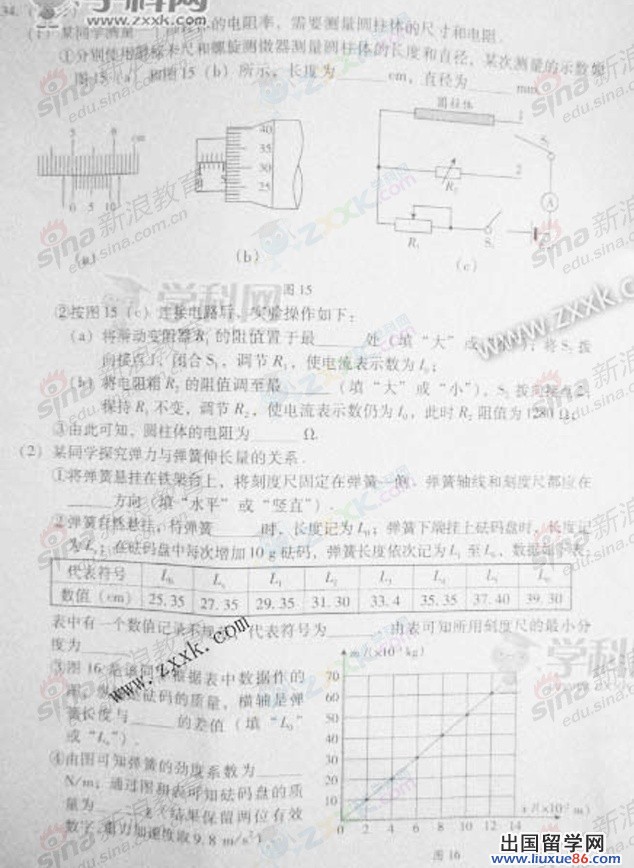 学科网
www.zxxk.com
34.
(1) 某同学测量一个圆柱体的电阻率，需要测量圆柱体的尺寸和电阻.
①分别使用游标卡尺和螺旋测微器测量圆柱体的长度和直径，某次测量的示数如
图15（a）和图15（b）所示，长度为______cm，直径为______mm
5 cm
0 5 10
(a)
40
35
30
25
0 5
(b)
圆柱体
1
2
S₂
R₂
A
R₁
S₁
E
(c)
图15
②按图15（c）连接电路后，实验操作如下：
(a) 将滑动变阻器R₁的阻值置于最______处（填“大”或“小”）；将S₂拨
向接点1，闭合S₁，调节R₁，使电流表示数为I₀；
(b) 将电阻箱R₂的阻值调至最______（填“大”或“小”），S₂拨向接点2，
保持R₁不变，调节R₂，使电流表示数仍为I₀，此时R₂阻值为1280 Ω；
③由此可知，圆柱体的电阻为______Ω.
(2) 某同学探究弹力与弹簧伸长量的关系.
①将弹簧悬挂在铁架台上，将刻度尺固定在弹簧一侧，弹簧轴线和刻度尺都应在
______方向（填“水平”或“竖直”）.
②弹簧自然悬挂，待弹簧______时，长度记为L₀；弹簧下端挂上砝码盘时，长度记
为Lₓ；在砝码盘中每次增加10 g砝码，弹簧长度依次记为L₁至L₆，数据如下表：
代表符号 L₀ Lₓ L₁ L₂ L₃ L₄ L₅ L₆
数值（cm） 25.35 27.35 29.35 31.30 33.4 35.35 37.40 39.30
表中有一个数值记录不规范，代表符号为______. 由表可知所用刻度尺的最小分
度为______.
③图16是该同学根据表中数据作的
图，纵轴是砝码的质量，横轴是弹
簧长度与______的差值（填“L₀”
或“Lₓ”）.
④由图可知弹簧的劲度系数为______
N/m；通过图和表可知砝码盘的质
量为______g（结果保留两位有效
数字，重力加速度取9.8 m/s²）
m/(×10⁻³kg)
70
60
50
40
30
20
10
0 2 4 6 8 10 12 14
x/(×10⁻² m)
图16
sina 新浪教育
edu.sina.com.cn
ZXXK.com
学科网
www.zxxk.com
出国留学网
www.liuxue86.com